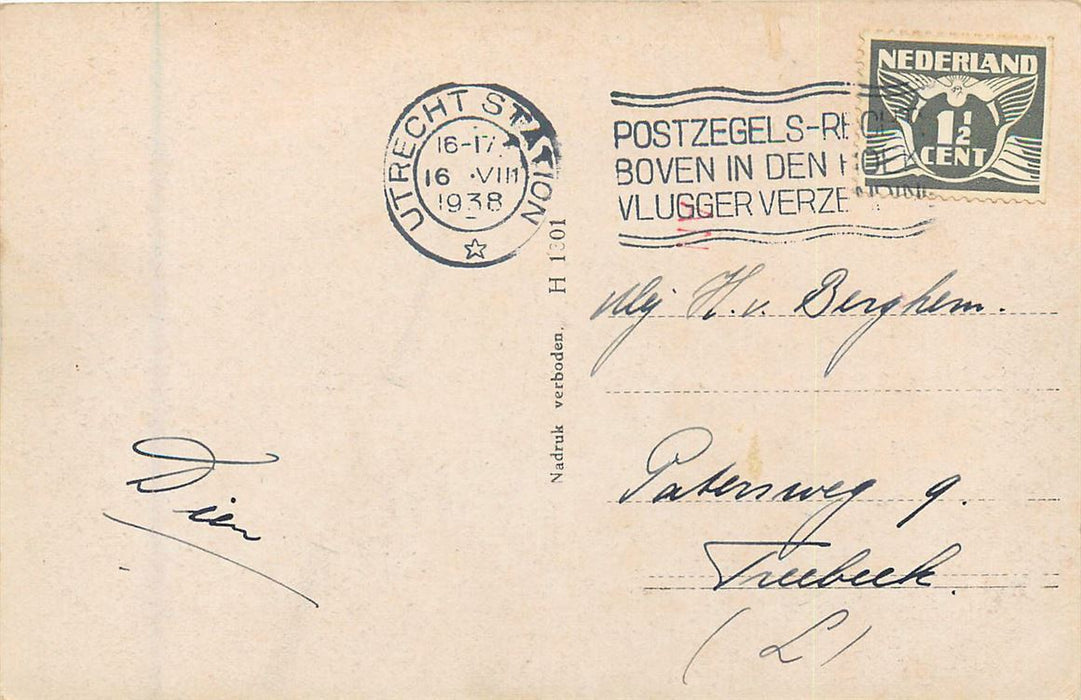 UTRECHT STATION
16-17
16 VIII
1938
POSTZEGELS-RECH
BOVEN IN DEN HOEK
VLUGGER VERZE
NEDERLAND
1½
CENT
Mej H. v. Berghem.
Patersweg 9.
Treebeek.
(L)
Dien
Nadruk verboden. H 1301